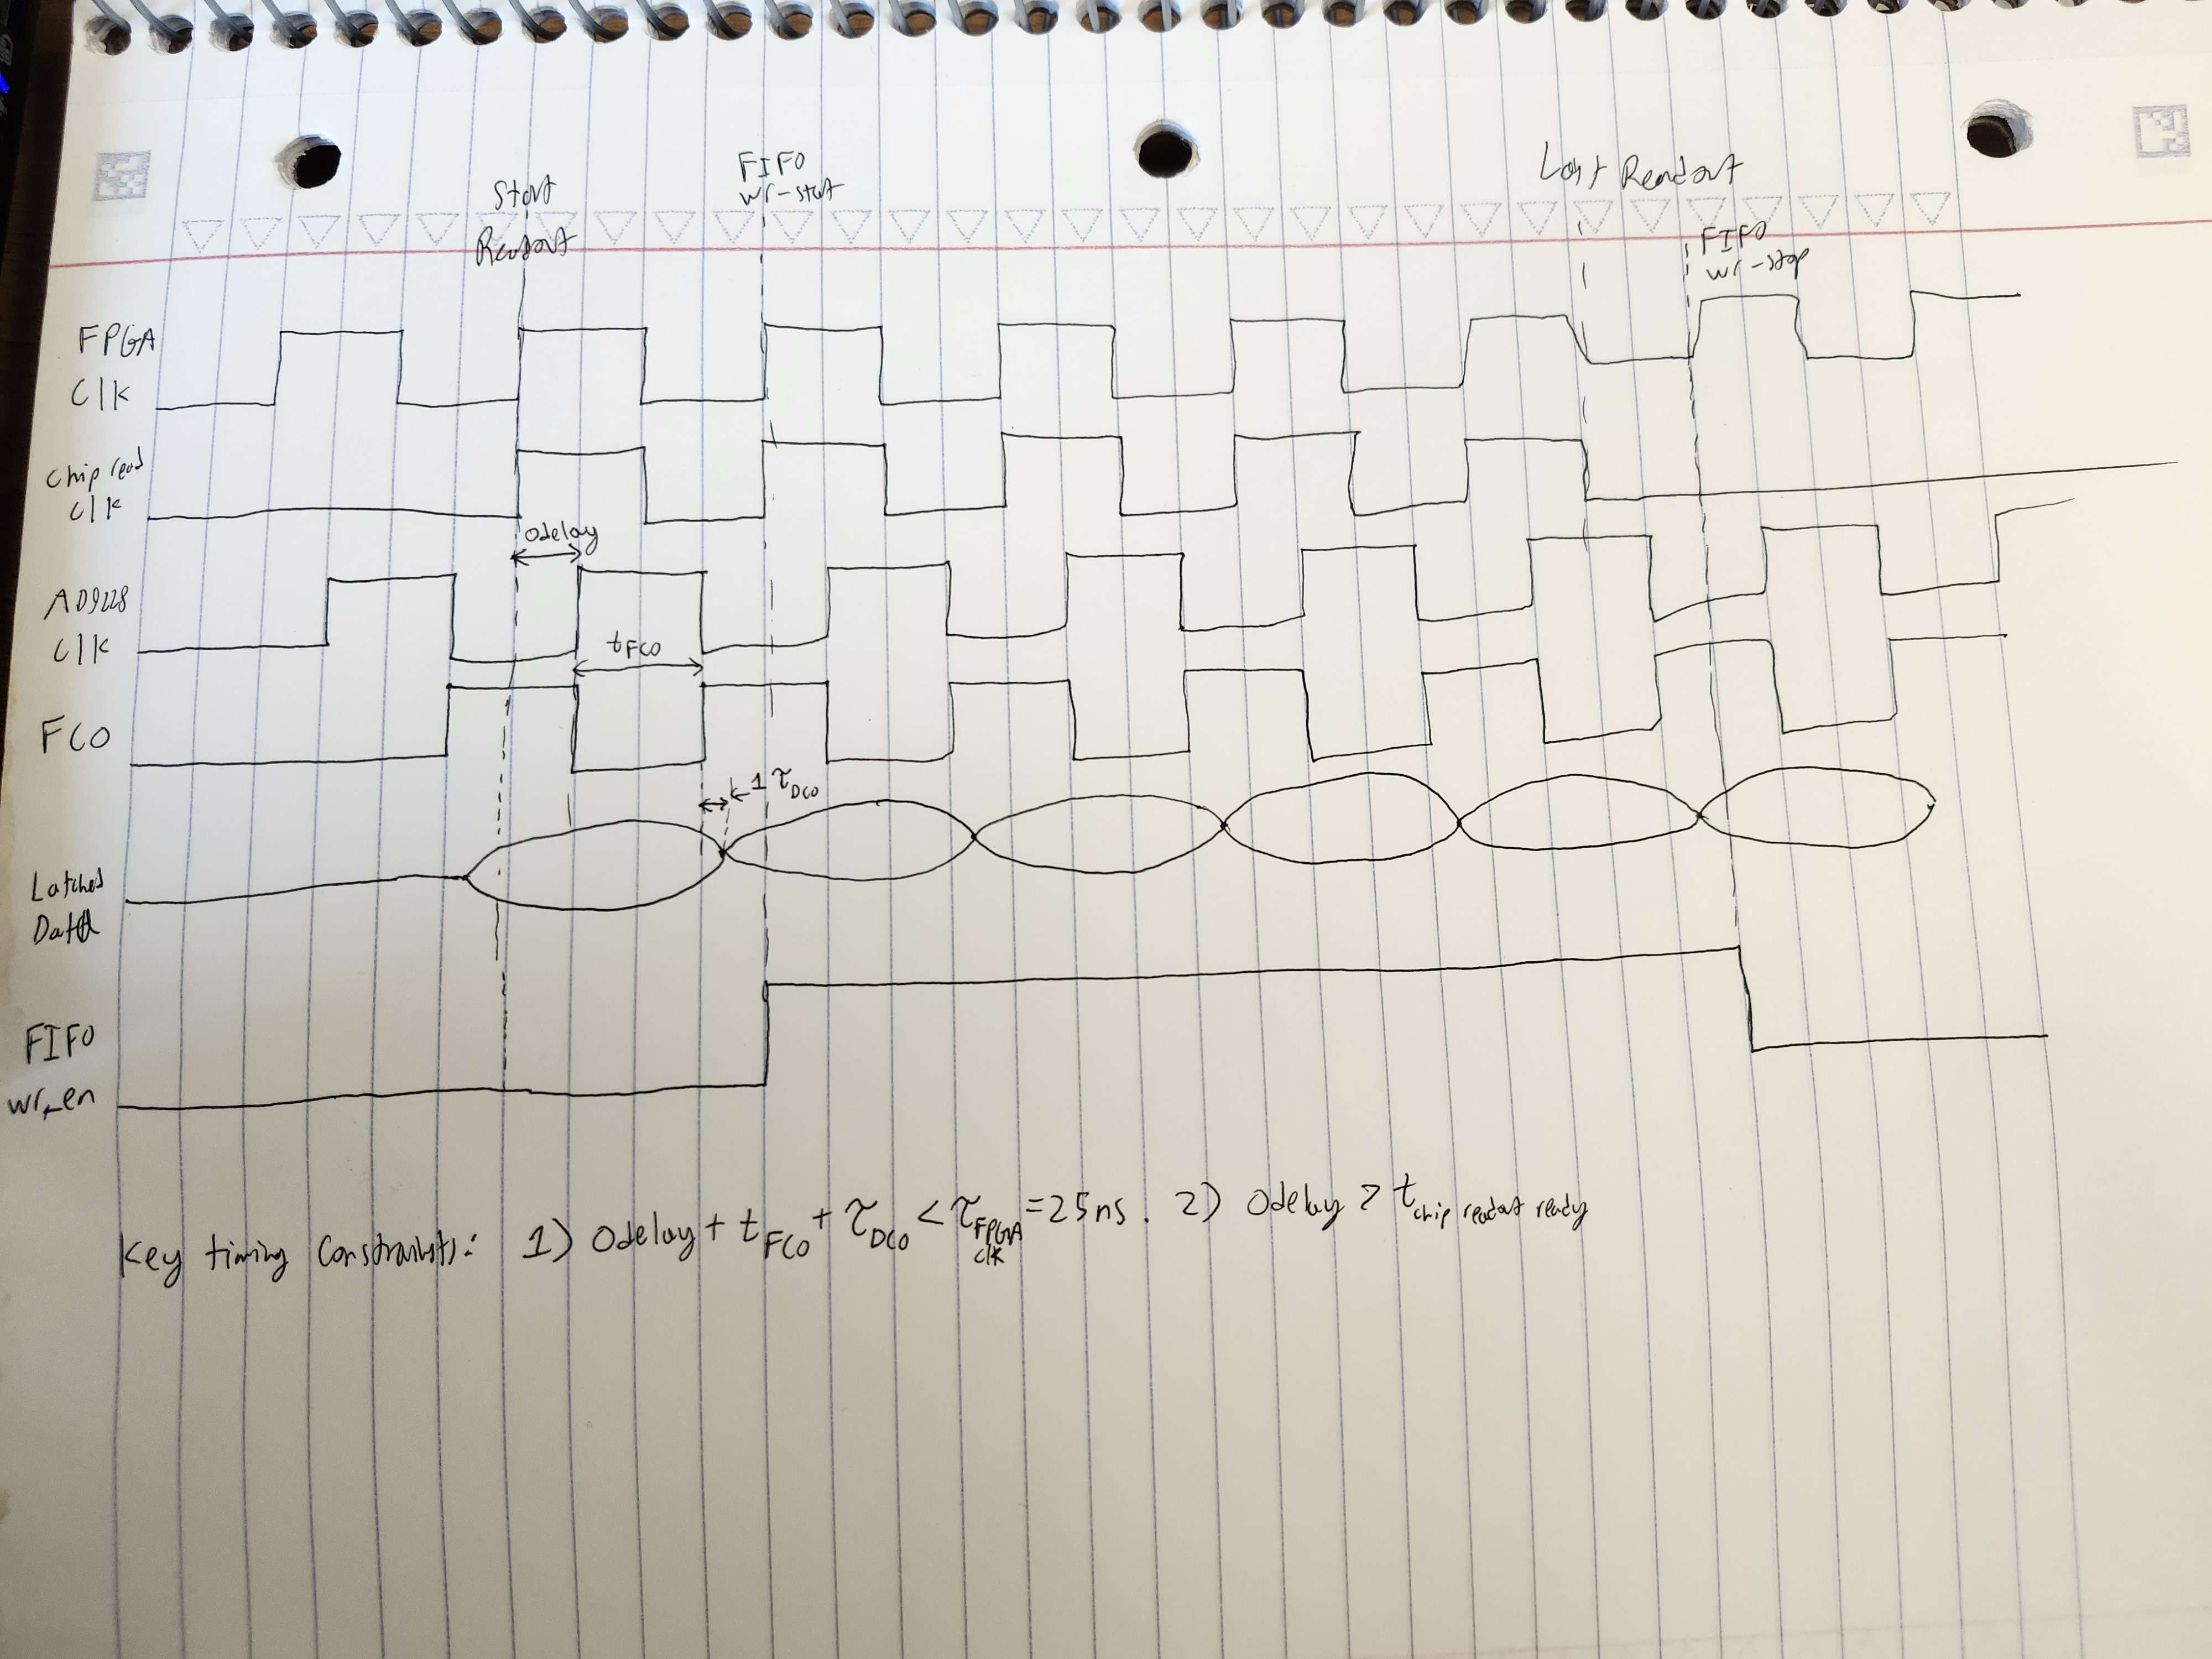 Start
Readout
FIFO
wr-start
Last Readout
FIFO
wr-stop
FPGA
Clk
Chip read
clk
Odelay
AD9228
Clk
t_FCO
FCO
1 τ_DCO
Latched
Data
FIFO
wr_en
Key timing constraints: 1) Odelay + t_FCO + τ_DCO < τ_FPGA clk = 25ns. 2) Odelay > t_chip readout ready